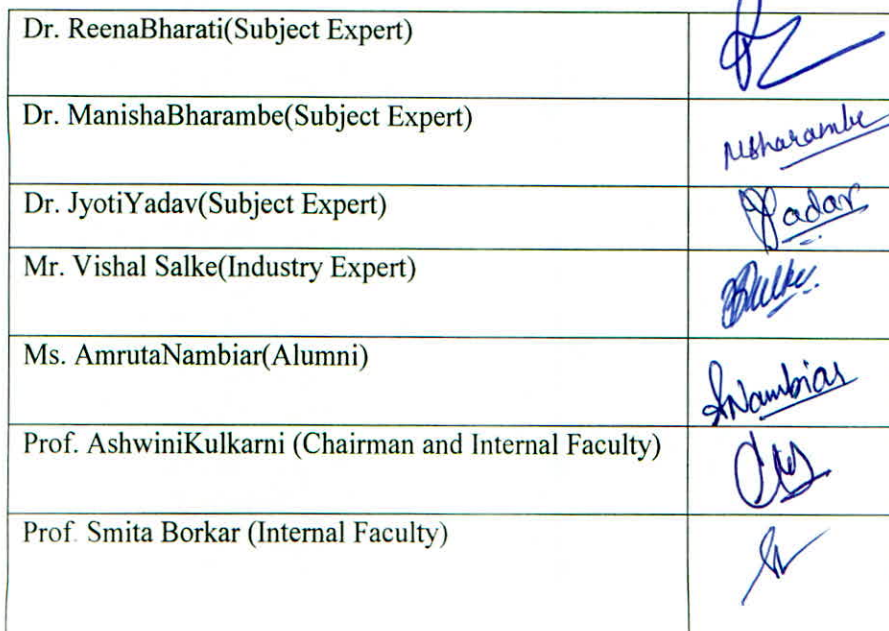 Dr. ReenaBharati(Subject Expert)
Dr. ManishaBharambe(Subject Expert) MBharambe
Dr. JyotiYadav(Subject Expert) JYadav
Mr. Vishal Salke(Industry Expert)
Ms. AmrutaNambiar(Alumni) ANambiar
Prof. AshwiniKulkarni (Chairman and Internal Faculty)
Prof. Smita Borkar (Internal Faculty)